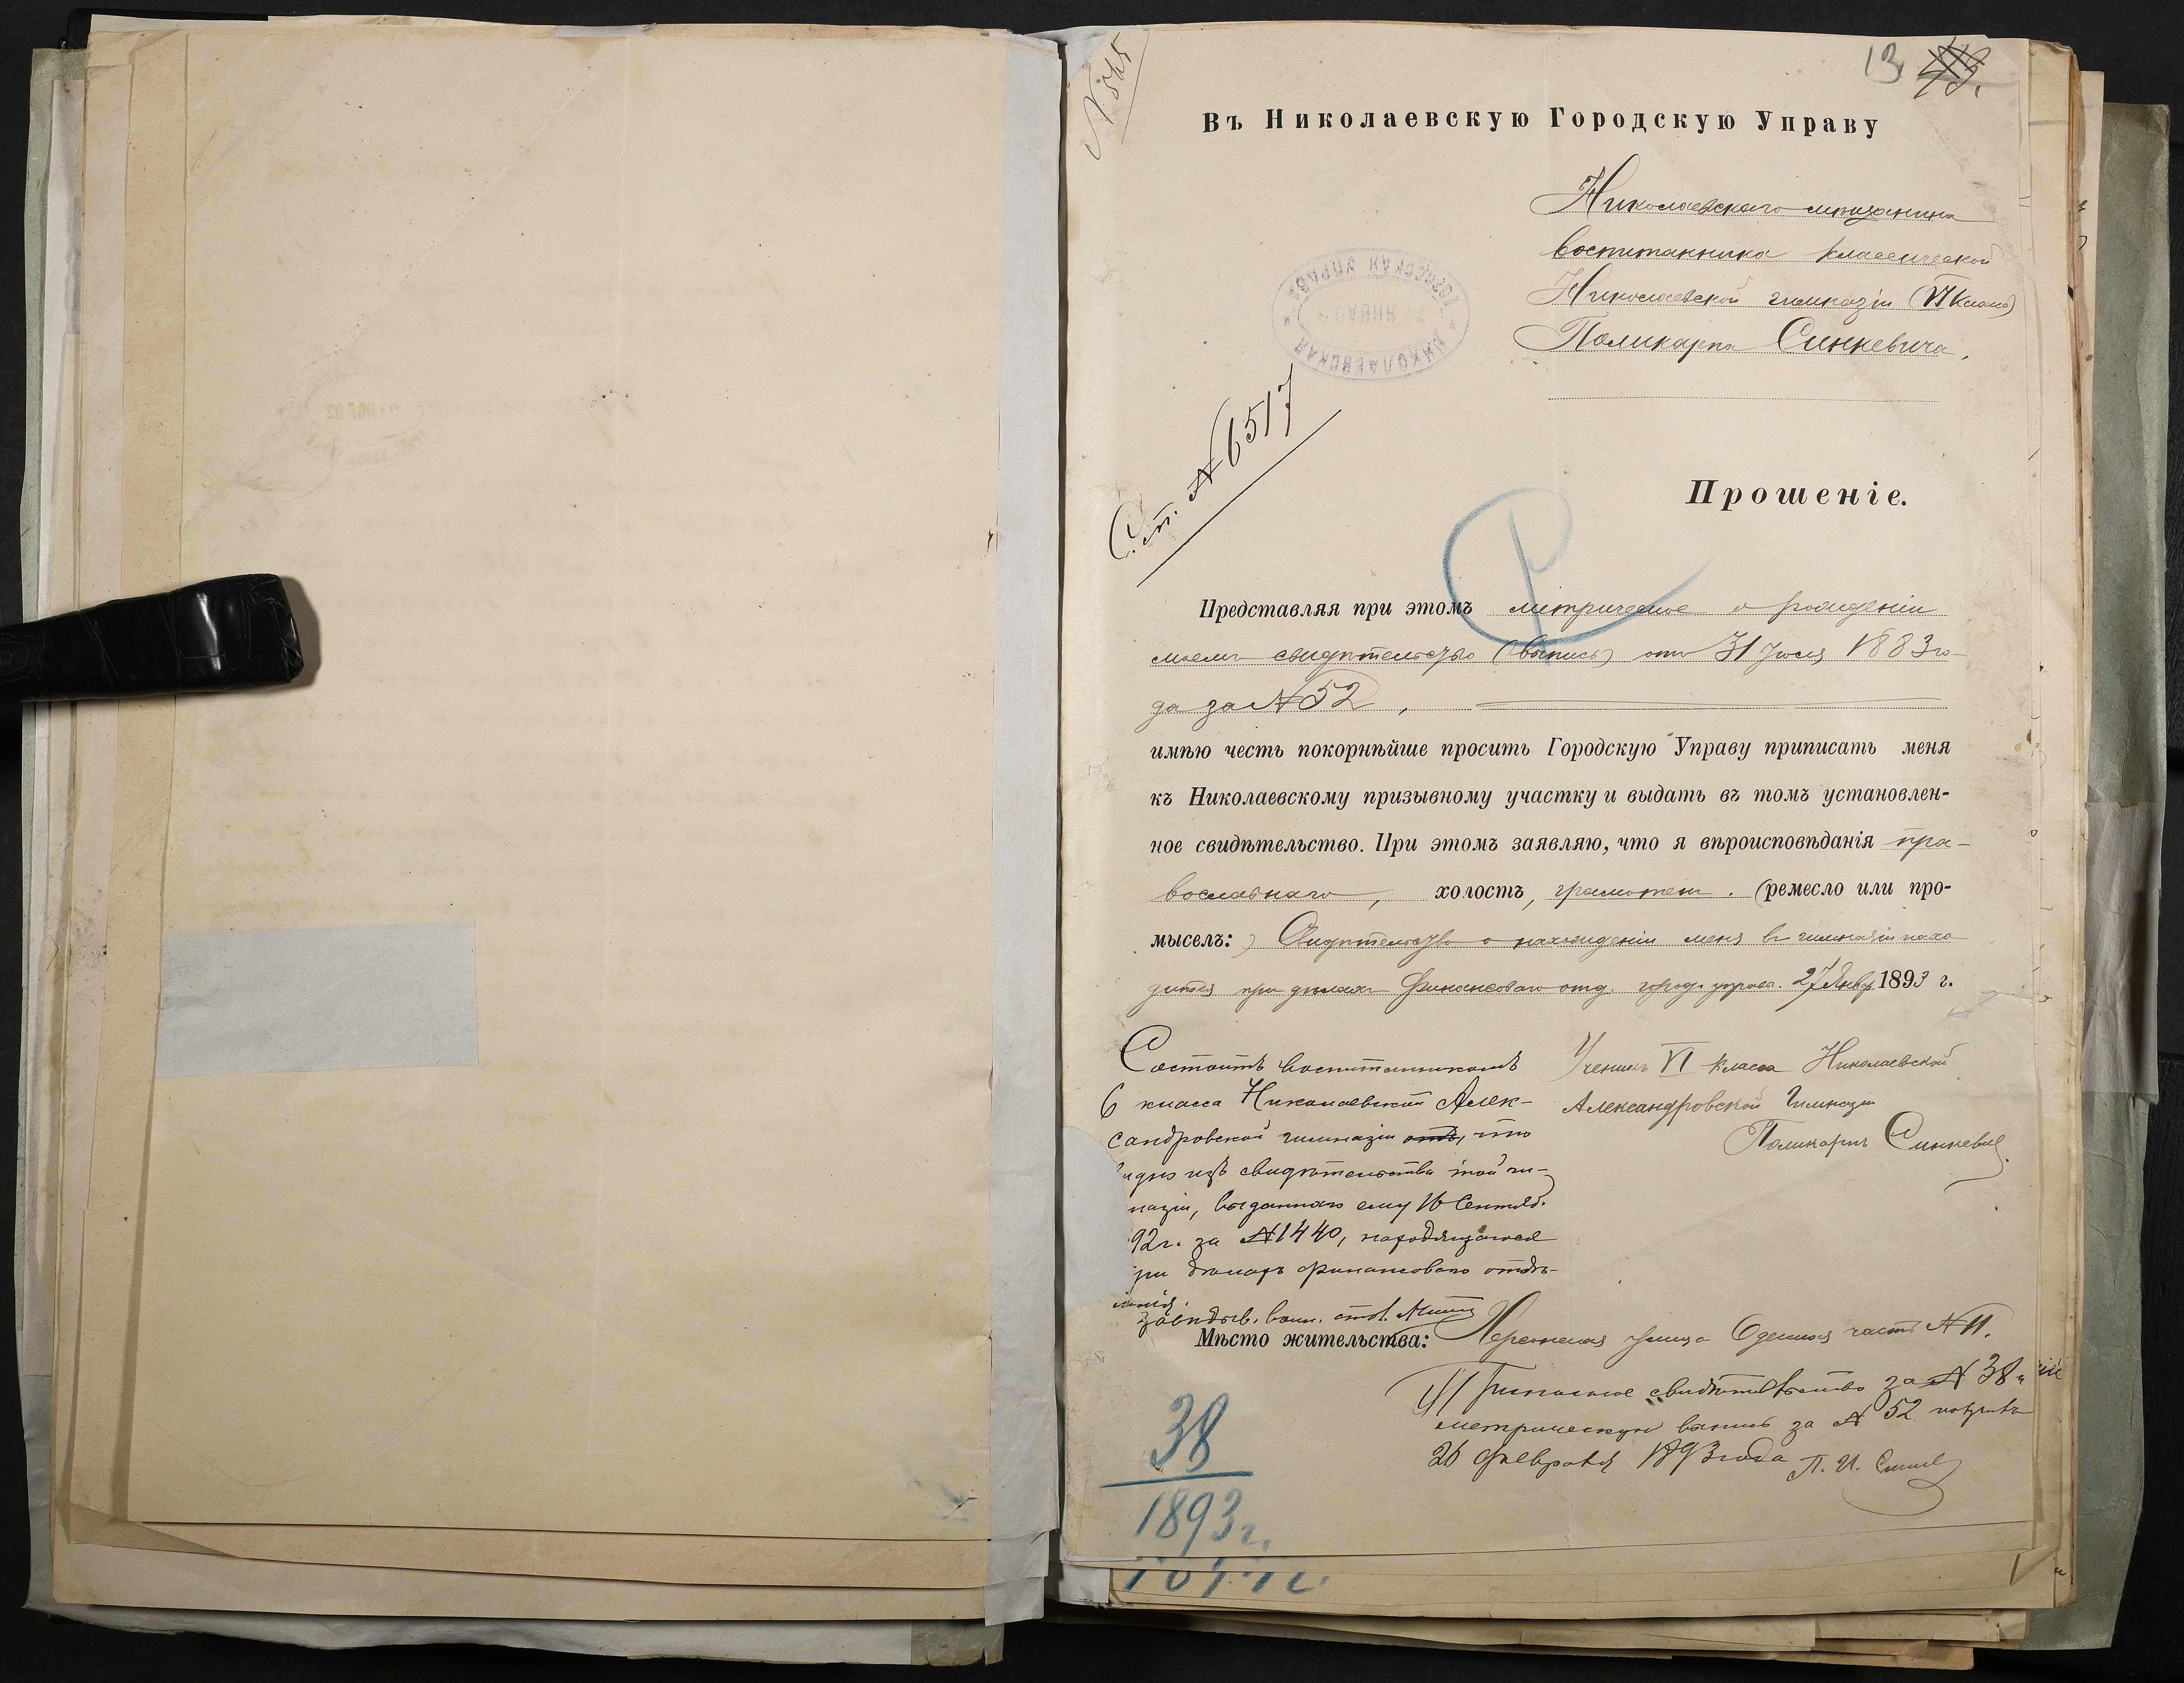 13
N 545
Въ Николаевскую Городскую Управу
Николаевскаго мѣщанина
воспитанника классической
Николаевской гимназіи (VI класса)
Поликарпа Синкевича,
НИКОЛАЕВСКАЯ ГОРОДСКАЯ УПРАВА
27 ЯНВА
Ст. N 6517
Прошеніе.
Представляя при этомъ метрическое о рожденіи
моемъ свидѣтельство (выпись) отъ 31 Іюля 1883 го-
да за N 52,
имѣю честь покорнѣйше просить Городскую Управу приписать меня
къ Николаевскому призывному участку и выдать въ томъ установлен-
ное свидѣтельство. При этомъ заявляю, что я вѣроисповѣданія пра-
вославнаго, холостъ, грамотенъ. (ремесло или про-
мыселъ:) Свидѣтельство о нахожденіи меня въ гимназіи нахо
дится при дѣлахъ финансоваго отд. город. управ. 27 Янвр 1893 г.
Состоитъ воспитанникомъ
6 класса Николаевской Алек-
сандровской гимназіи что
идно изъ свидѣтельства той ги-
назіи, выданнаго ему 16 Сентяб.
92 г. за N 1440, находящагося
ри дѣлахъ финансоваго отдѣ-
ленія.
Завѣдыв. воин. стол.
Ученикъ VI класса Николаевской
Александровской Гимназіи
Поликарпъ Синкевич.
Мѣсто жительства: Херсонская улица Одесская часть N 11.
Приписное свидѣтельство за N 38 и
метрическую выпись за N 52 получилъ
26 февраля 1893 года П. И. Синкев
38
1893 г.